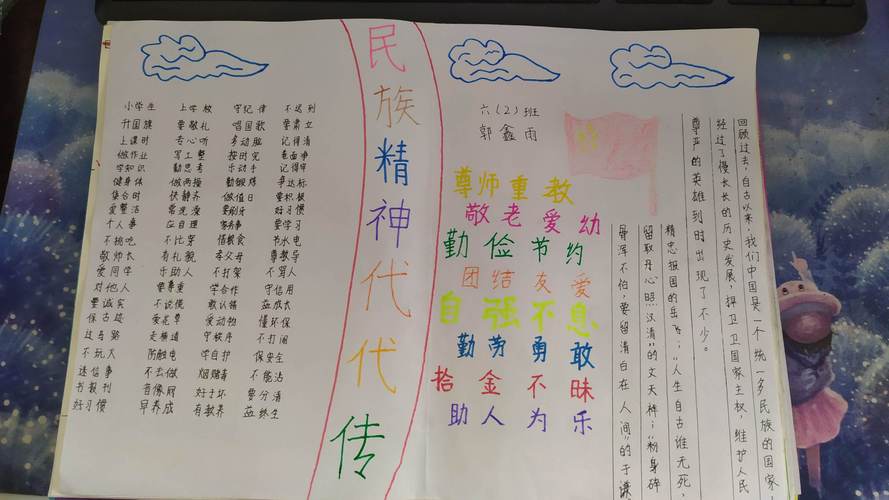 民族精神代代传
小学生 上学校 守纪律 不迟到
升国旗 要敬礼 唱国歌 要肃立
上课时 专心听 多动脑 记得清
做作业 写工整 按时完 卷面净
学知识 勤思考 乐动手 记得牢
健身体 做两操 勤锻炼 争达标
集合时 快静齐 做值日 要积极
爱整洁 常洗澡 要刷牙 好习惯
个人事 应自理 家务事 要学习
不挑吃 不比穿 惜粮食 节水电
敬师长 有礼貌 孝父母 尊教导
爱同学 乐助人 不打架 不骂人
对他人 要尊重 学合作 守信用
要诚实 不说谎 敢认错 益成长
保古迹 爱花草 爱动物 懂环保
过马路 走横道 守秩序 不打闹
不玩火 防触电 学自护 保安全
迷信事 不去做 烟赌毒 不能沾
书报刊 音像 好于坏 要分清
好习惯 早养成 有教养 益终生
六(2)班
郭鑫雨
尊师重教
敬老爱幼
勤俭节约
团结友爱
自强不息
勤劳勇敢
拾金不昧
助人为乐
回顾过去,自古以来,我们中国是一个统一多民族的国家
经过了慢长长的历史发展,捍卫卫国家主权,维护人民
尊严的英雄到时出现了不少。
精忠报国的岳飞;“人生自古谁无死,
留取丹心照汉清”的文天祥;“粉身碎
骨浑不怕,要留清白在人间”的于谦